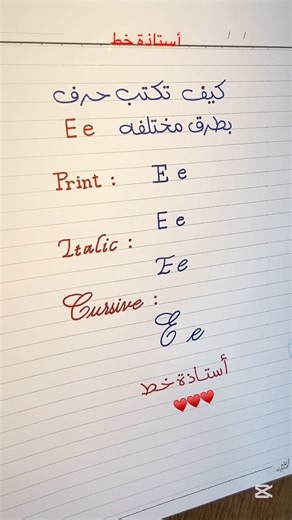 أستاذة خط
/ /
كيف تكتب حرف
بطرق مختلفه E e
Print : E e
E e
Italic :
E e
Cursive :
E e
أستاذة خط